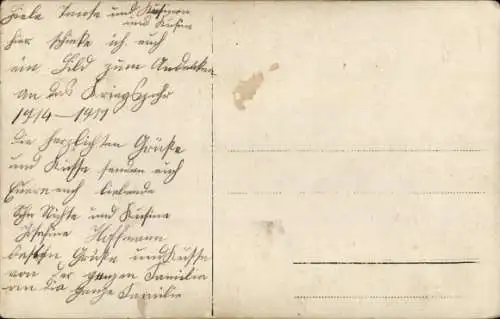 Liebe Tante und Kusinen
und Kusin
hier schicke ich euch
ein Bild zum Andenken
an das Kriegsjahr
1914 – 1917
die herzlichsten Grüße
und Küsse senden euch
Euere euch liebende
Nichte und Kusine
Josefine Hoffmann
besten Grüße und Küsse
von der ganzen Familie
an die ganze Familie